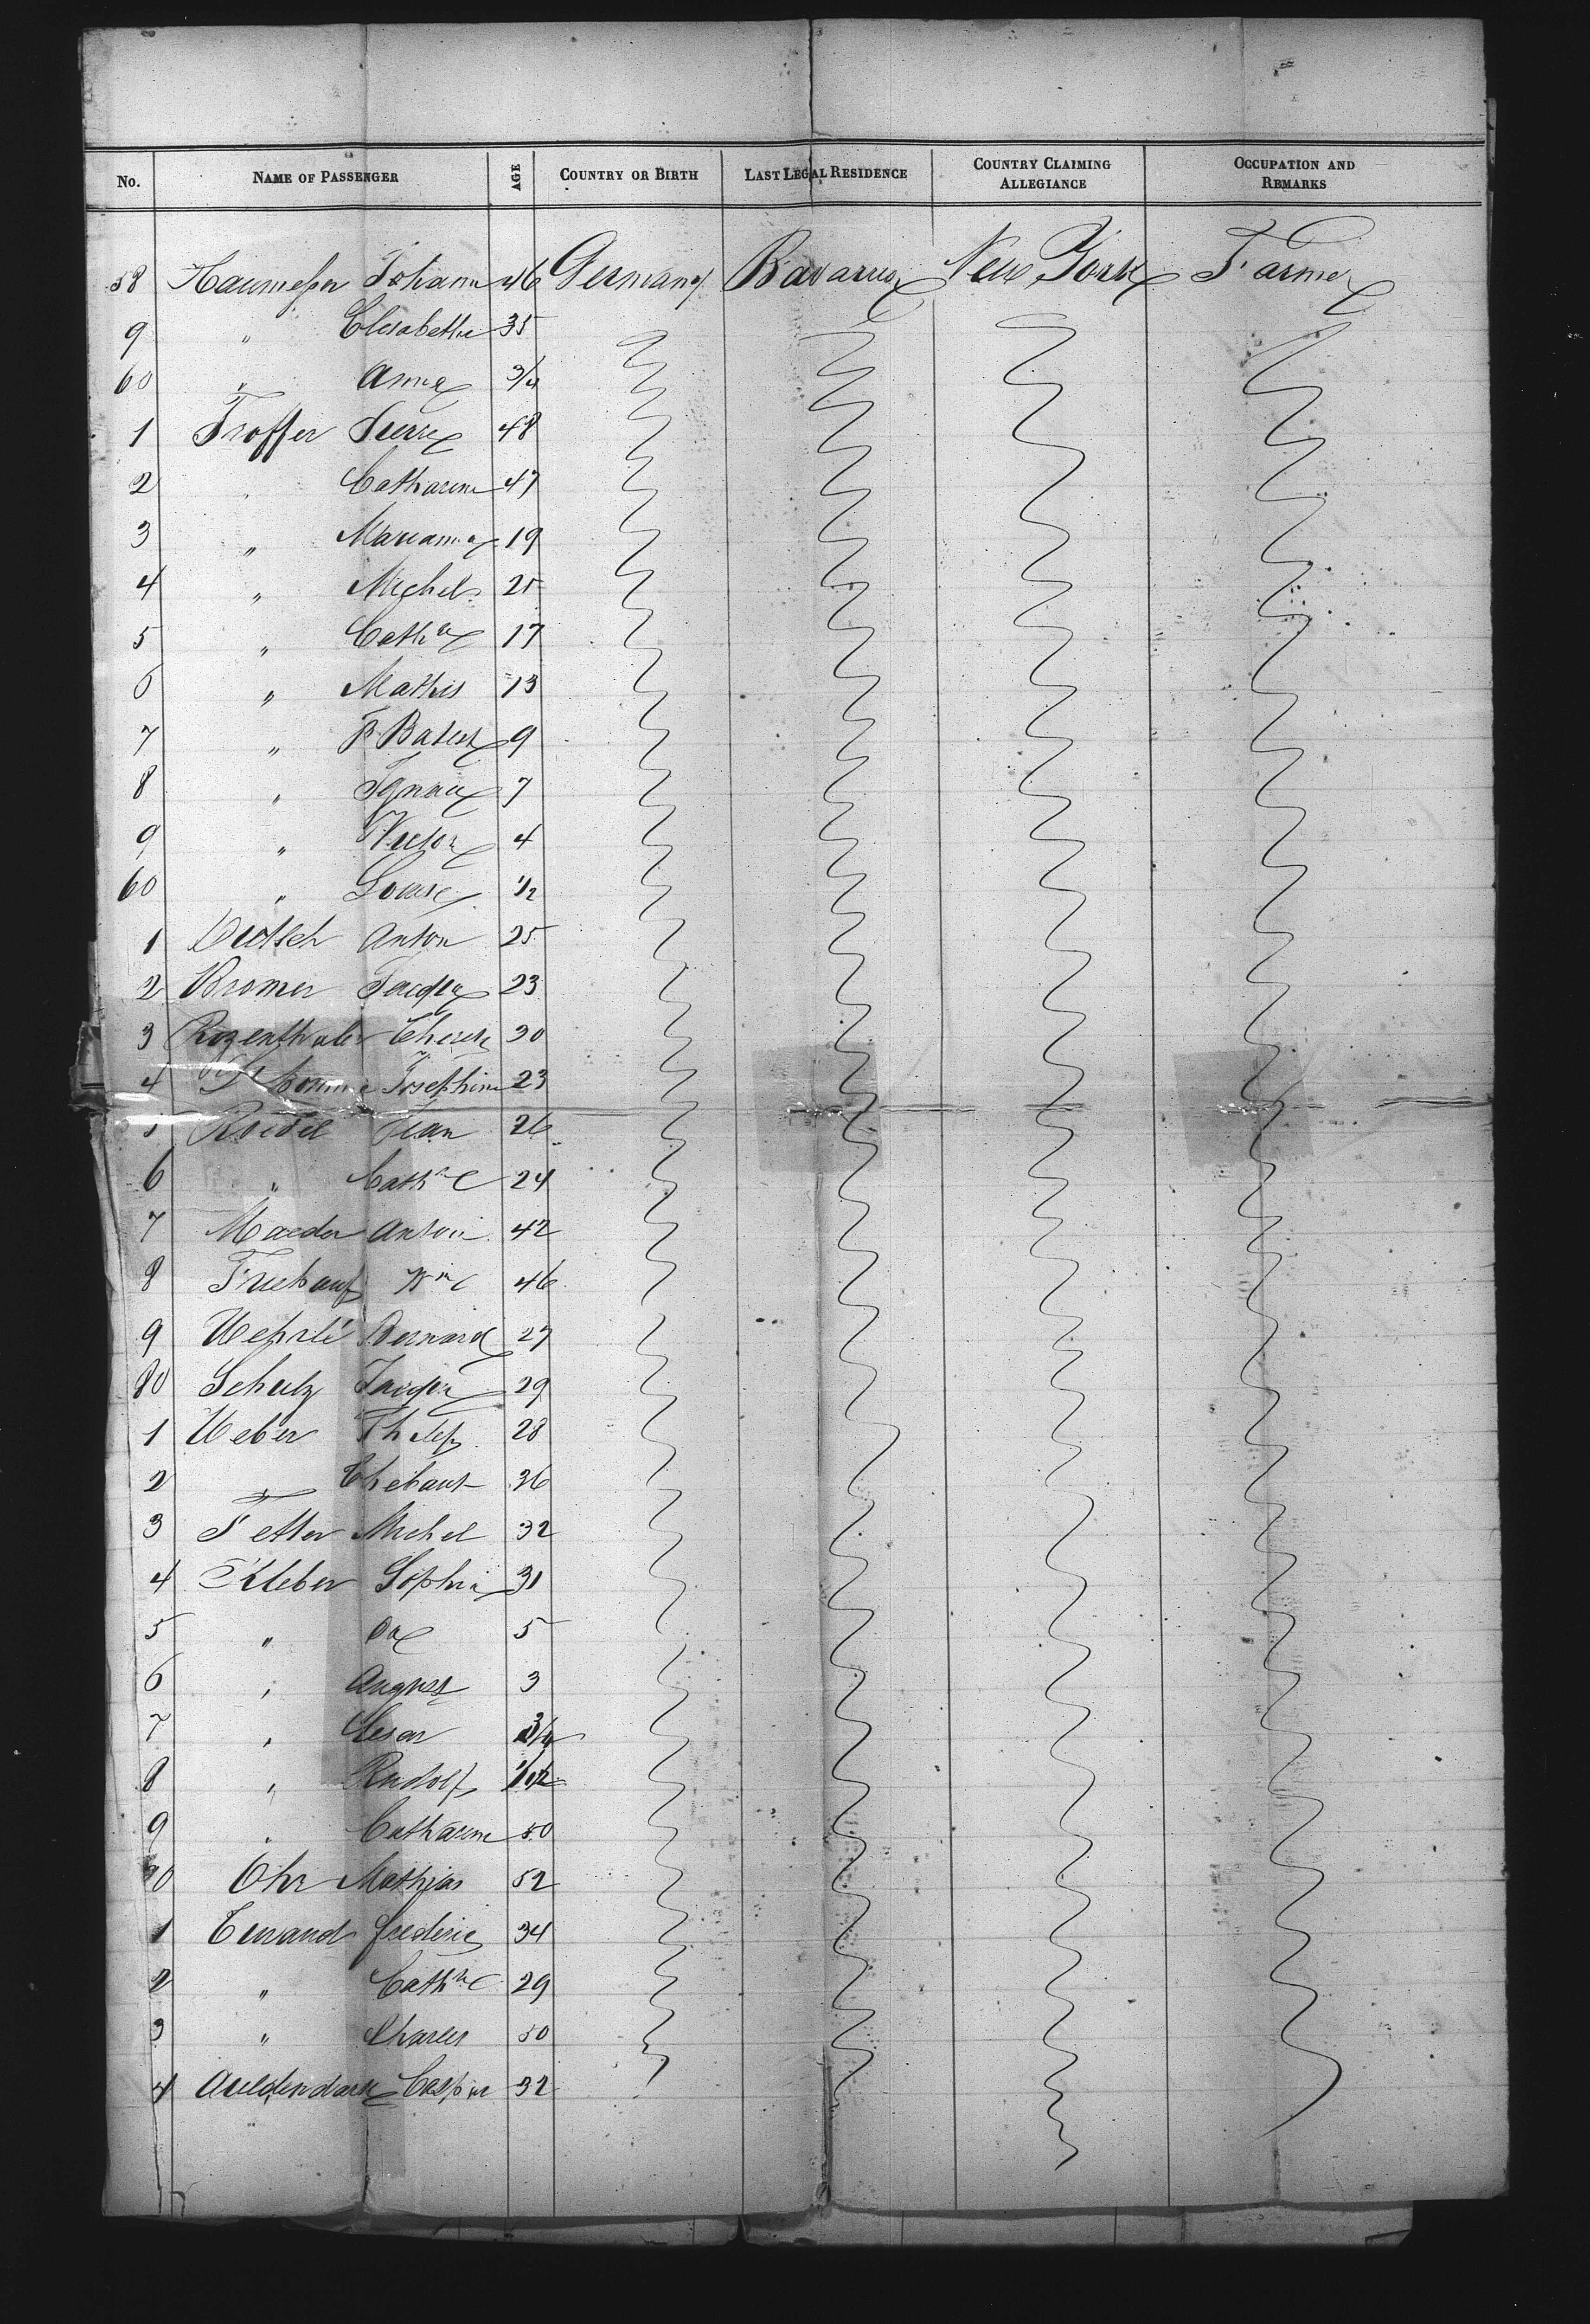 No. NAME OF PASSENGER AGE COUNTRY OR BIRTH LAST LEGAL RESIDENCE COUNTRY CLAIMING ALLEGIANCE OCCUPATION AND REMARKS
58 Johann 46 Germany Bavaria New York Farmer
9 " Elisabetha 35
60 " Anna 3/4
1 Troffer Pierre 48
2 " Catharine 47
3 " Marianna 19
4 " Michel 25
5 " Cathne 17
6 " Mathis 13
7 " 9
8 " Ignace 7
9 " Victor 4
60 " Louise 1/2
1 Anton 25
2 Bromer 23
3 Rozenthaler Therese 30
4 Josephine 23
5 Roedel Jean 26
6 " Cathne 24
7 Maeder Anton 42
8 Fruhauf 46
9 Wehrlé Bernard 27
80 Schulz 29
1 Weber 28
2 " Thebaut 36
3 Fetter Michel 32
4 Kleber Sophia 31
5 " 5
6 " 3
7 " Cesar 3/4
8 " Rudolf
9 " Catharine 50
90 Ohr Mathias 52
1 Frederic 34
2 " Cathne 29
3 " Charles 50
4 Caspar 32